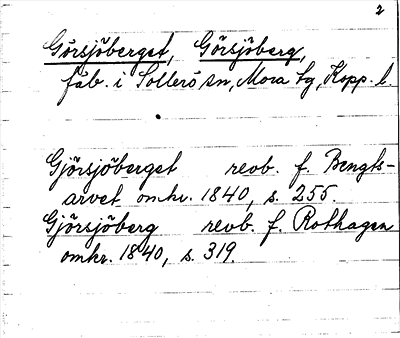 2
Görsjöberget, Görsjöberg,
fäb. i Sollerö sn, Mora tg, Kopp. l.
Gjörsjöberget revb. f. Bengts-
arvet omkr. 1840, s. 255.
Gjörsjöberg revb. f. Rothagen
omkr. 1840, s. 319.